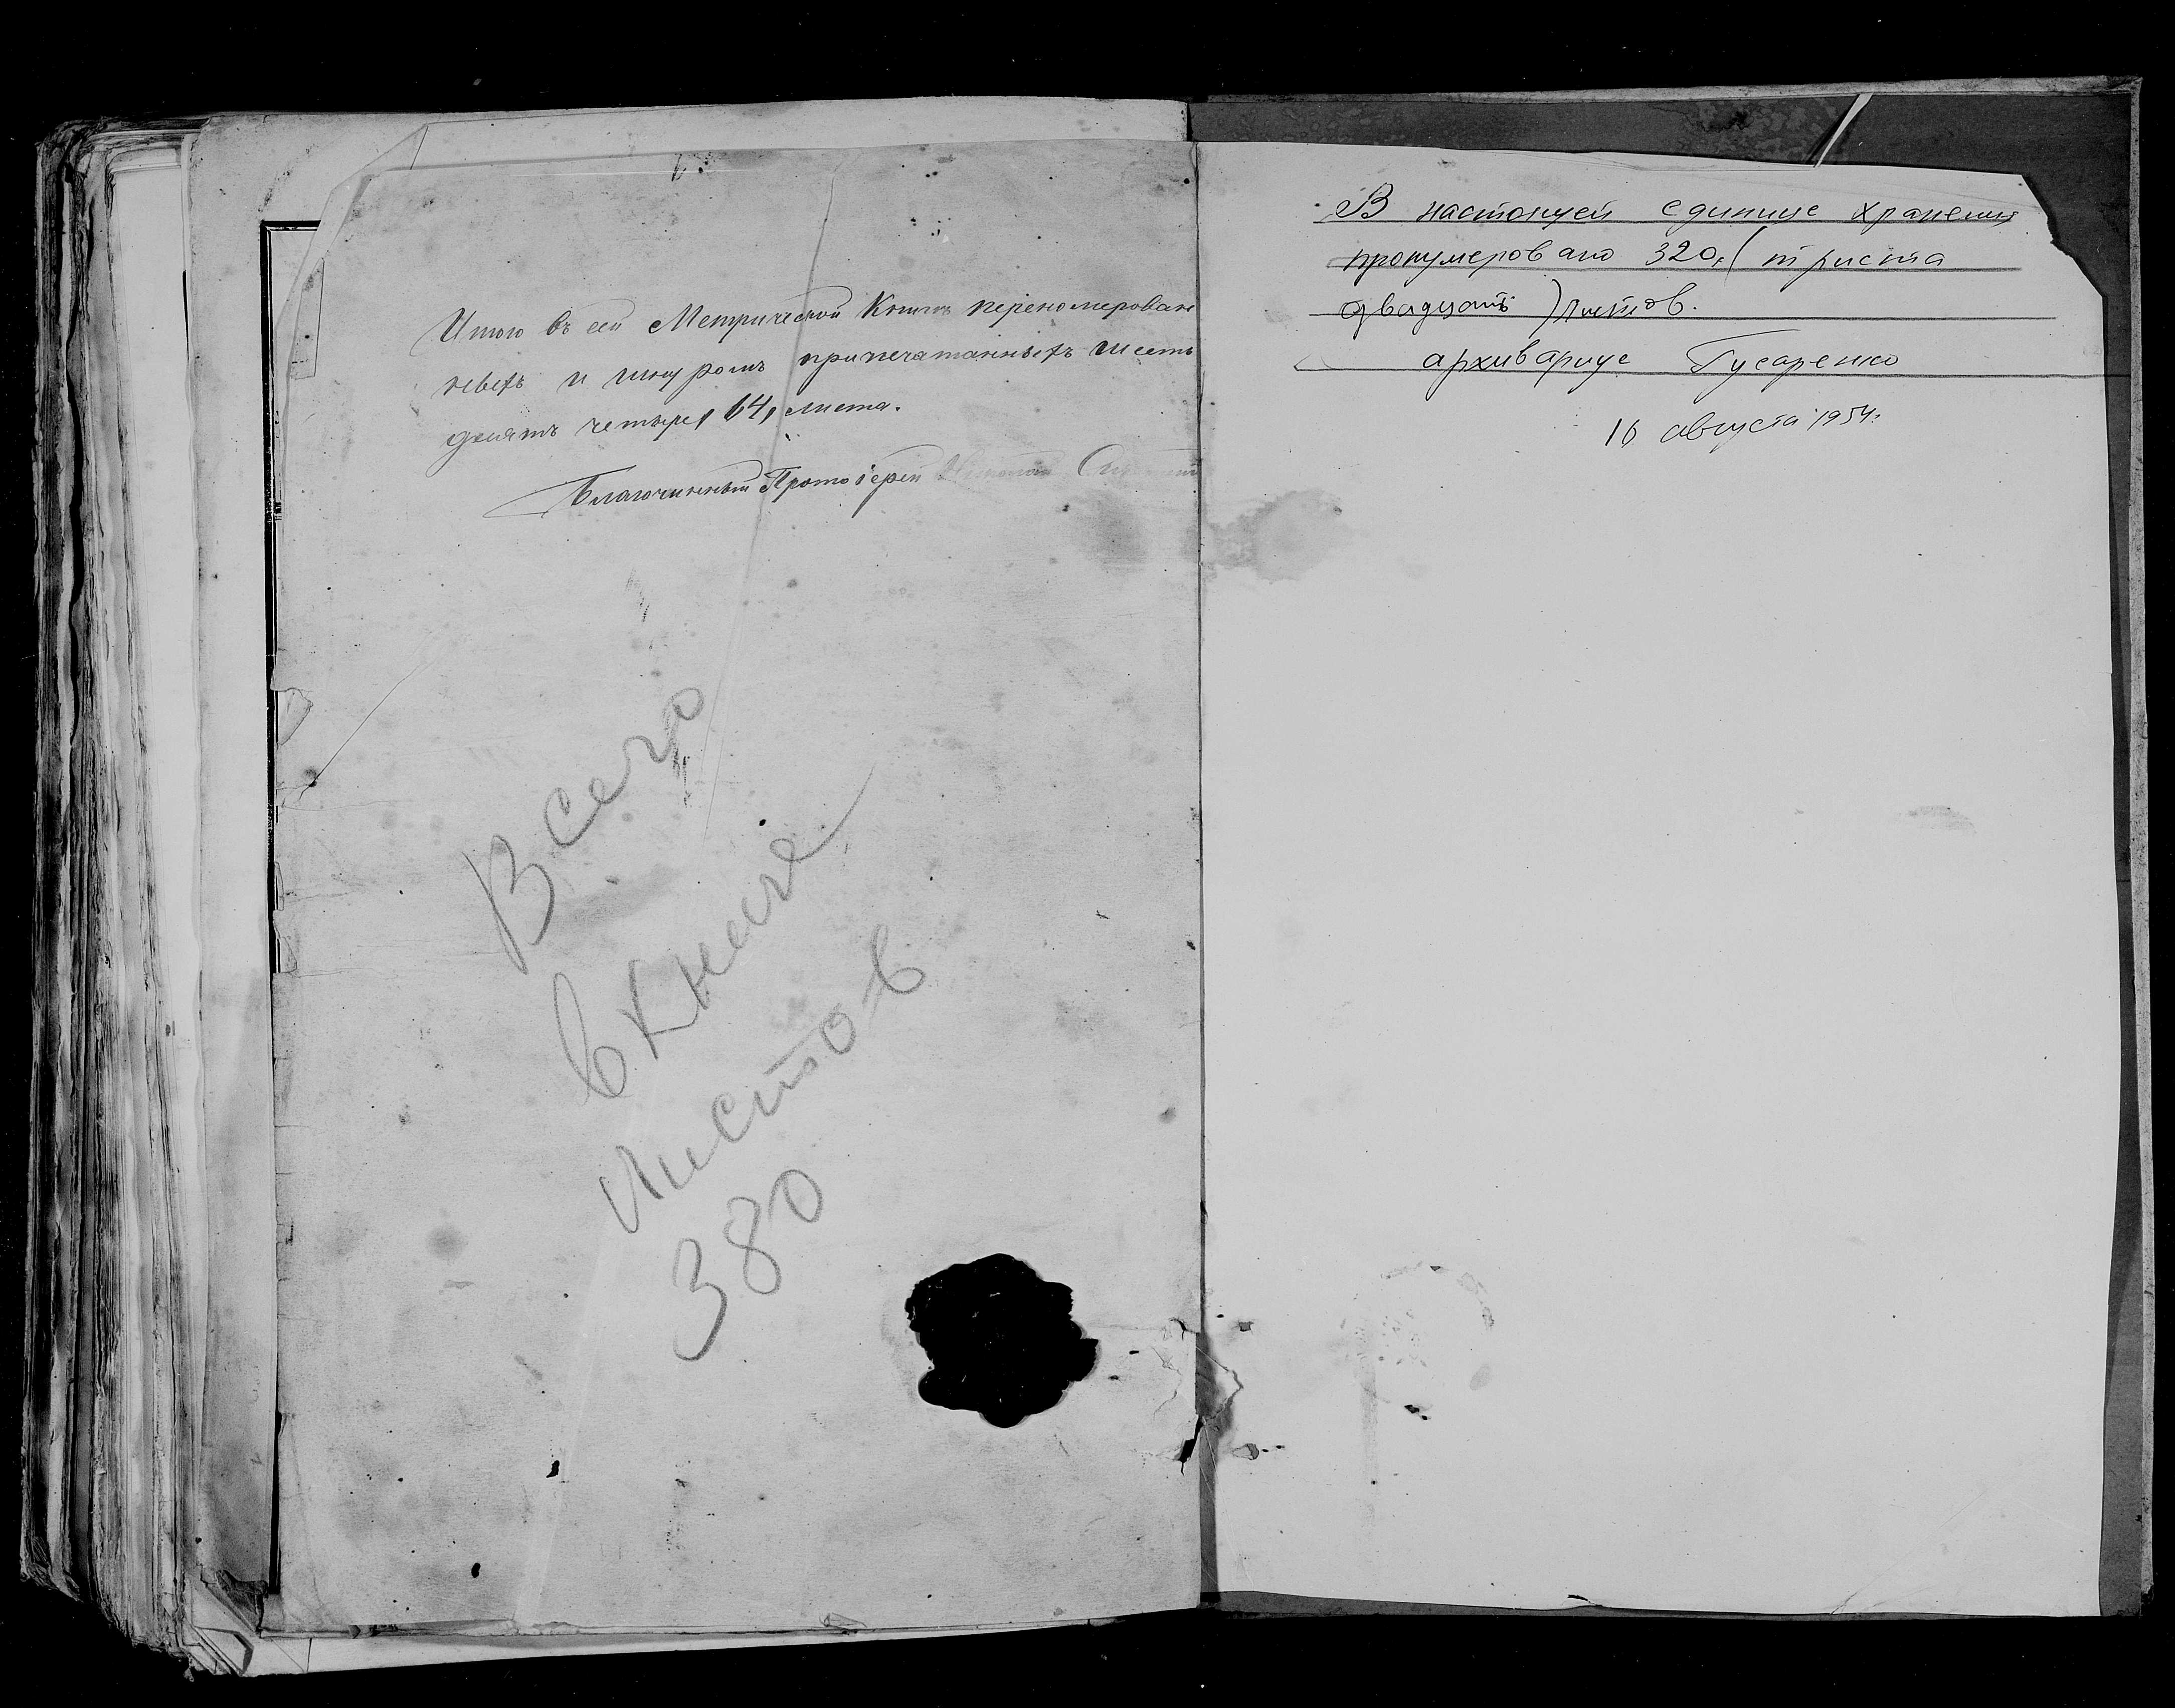 Итого въ сей Метрической Книгѣ переномерован
ныхъ и шнуромъ припечатанныхъ шесть
десятъ четыре, 64, листа.
Благочинный Протоіерей
Всего
в книге
листов
380
В настоящей единице хранения
пронумеровано 320, (триста
двадцать) листов.
архивариус Гусаренко
16 августа 1954г.